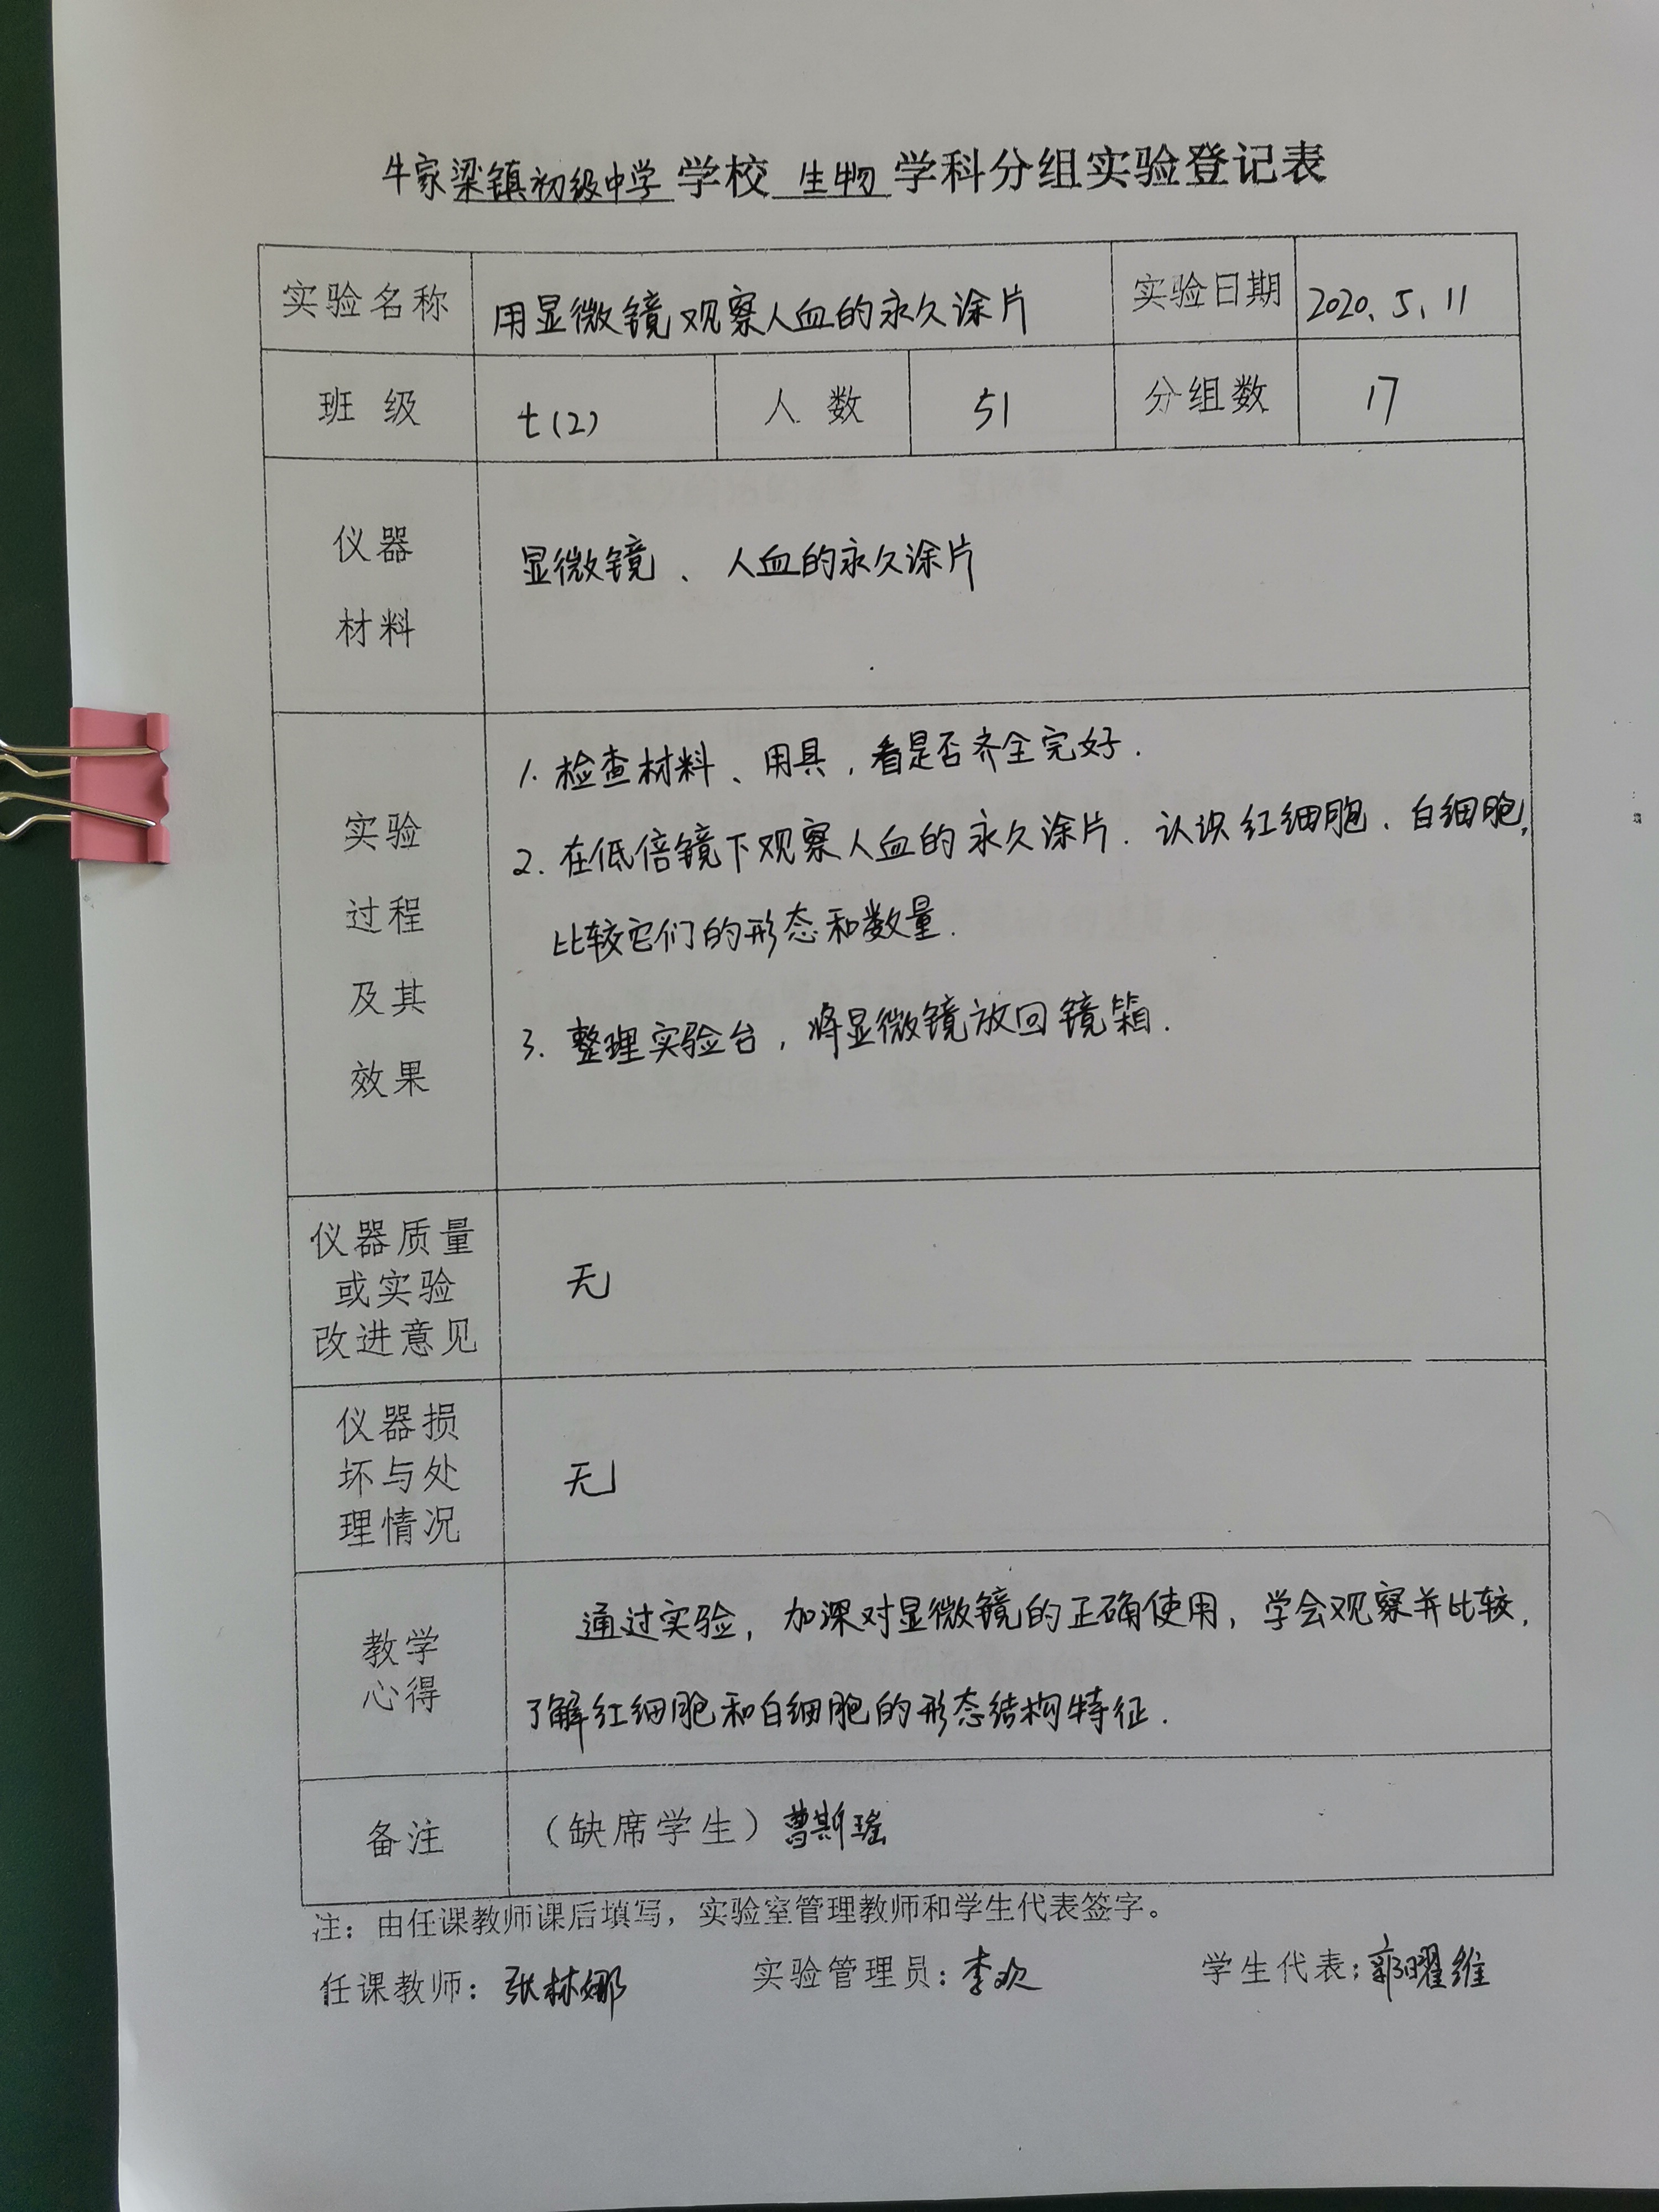 牛家梁镇初级中学 学校 生物 学科分组实验登记表
实验名称 用显微镜观察人血的永久涂片 实验日期 2020、5、11
班 级 七(2) 人 数 51 分组数 17
仪器
材料
显微镜、人血的永久涂片
实验
过程
及其
效果
1. 检查材料、用具，看是否齐全完好.
2. 在低倍镜下观察人血的永久涂片. 认识红细胞、白细胞,
比较它们的形态和数量.
3. 整理实验台，将显微镜放回镜箱.
仪器质量
或实验
改进意见
无
仪器损
坏与处
理情况
无
教学
心得
通过实验，加深对显微镜的正确使用，学会观察并比较，
了解红细胞和白细胞的形态结构特征.
备注 （缺席学生）曹斯瑶
注：由任课教师课后填写，实验室管理教师和学生代表签字。
任课教师：张林娜 实验管理员：李欢 学生代表：郭曜维